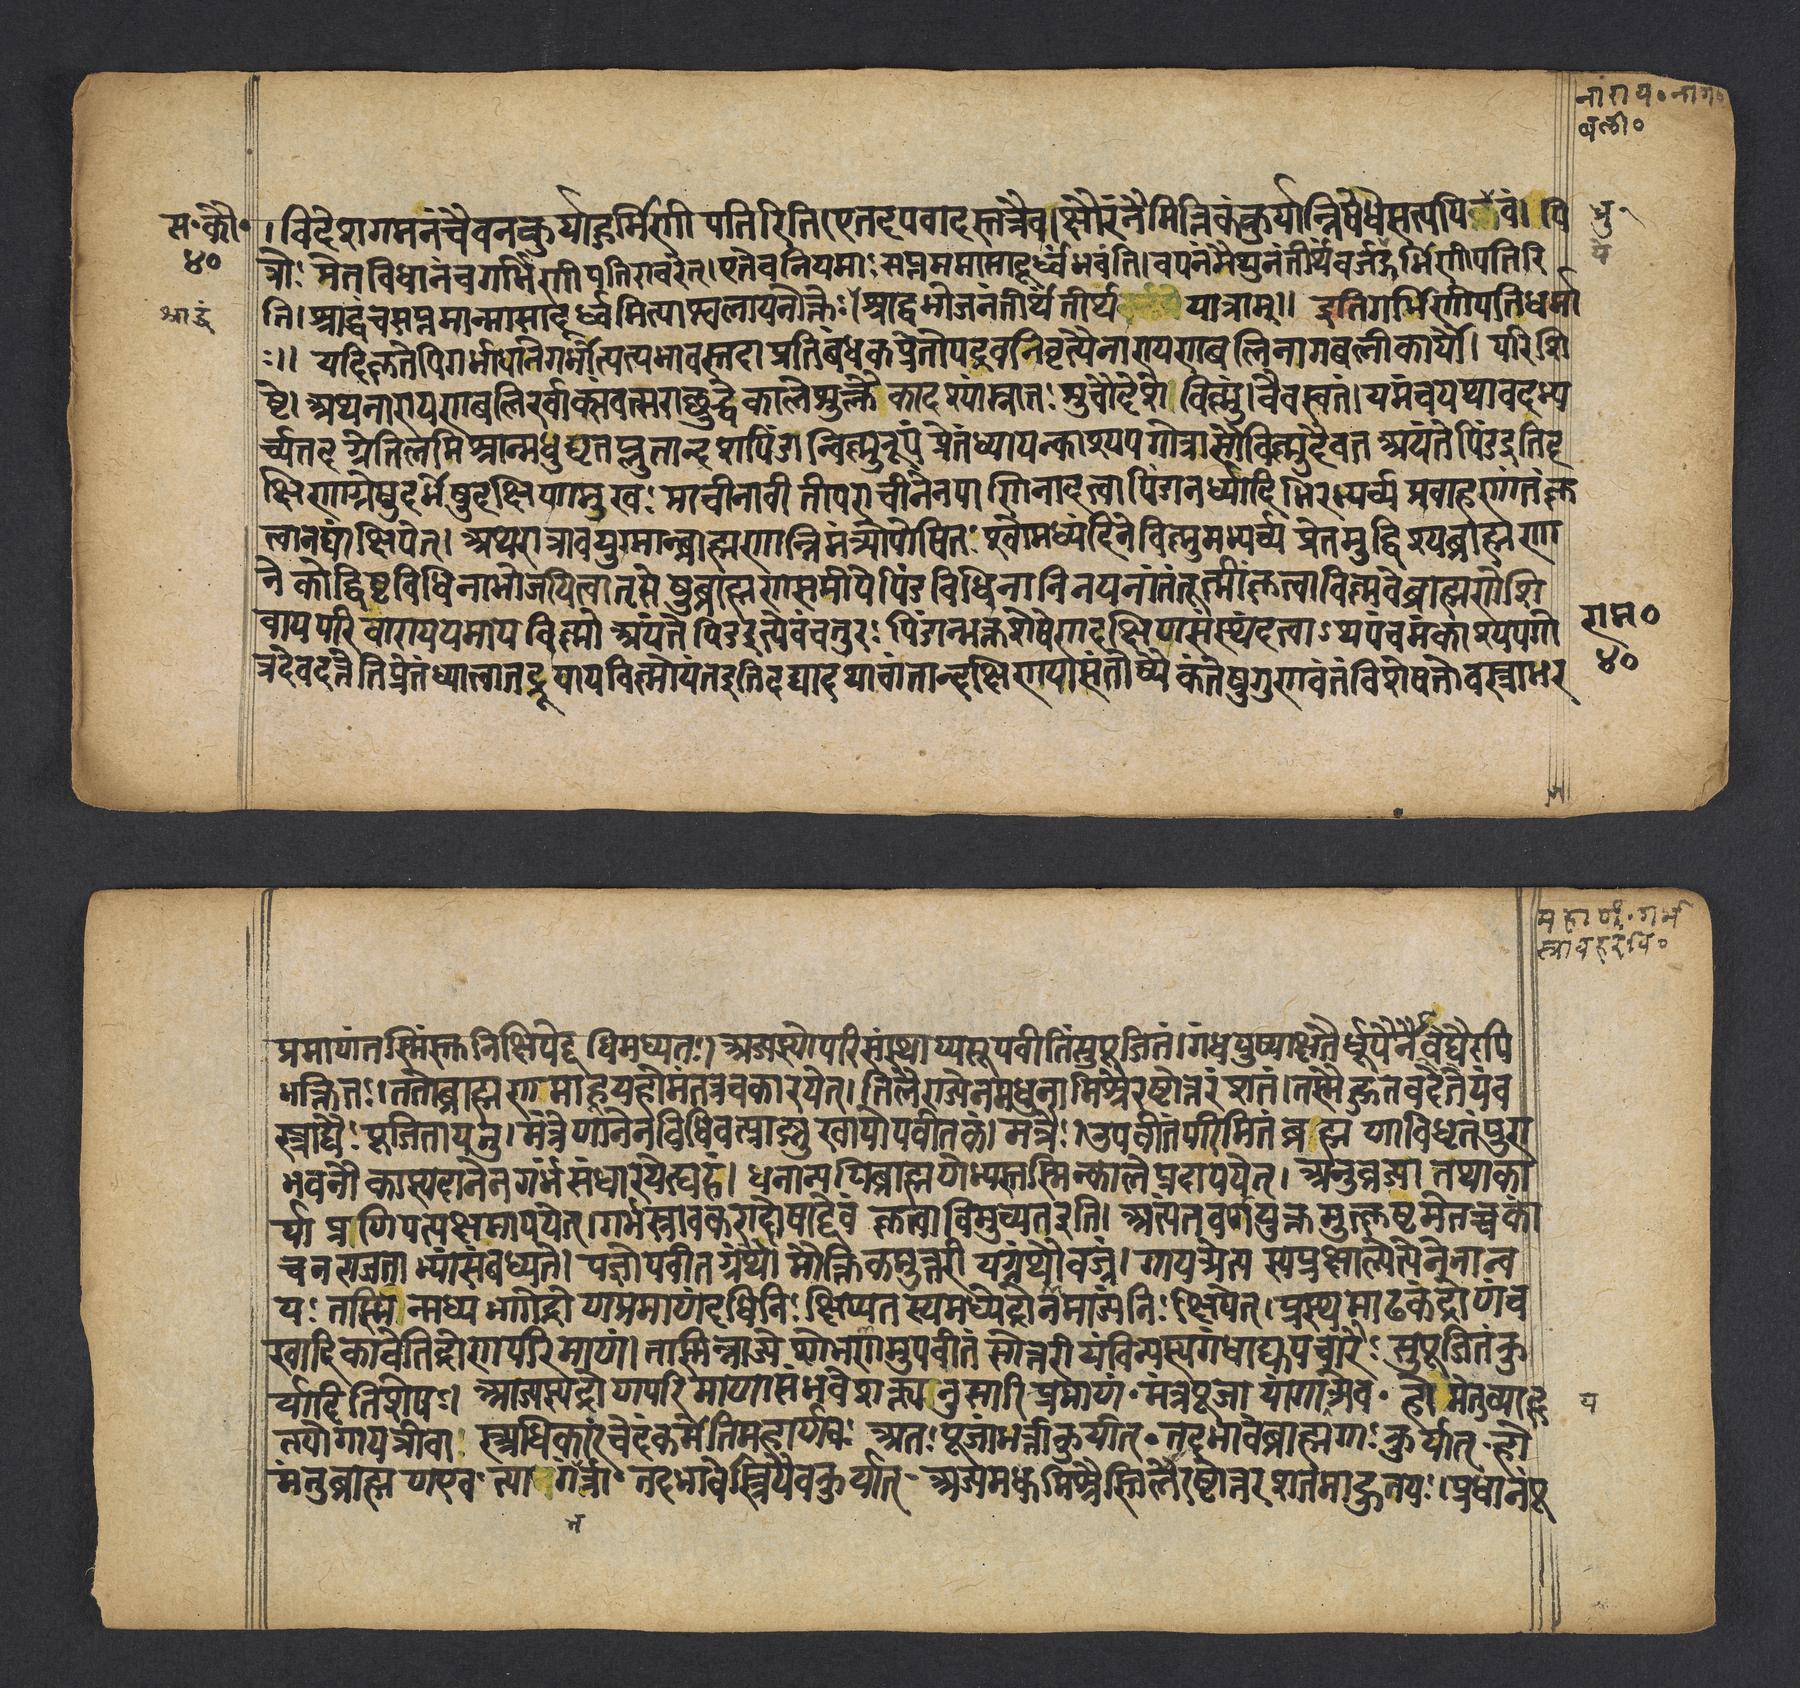 नारायणनाग॰
बली॰
सं॰ कौ॰
४०
। विदेशगमनंचैवनकुर्याद्गर्भिणीपतिरिति । एतदपवादस्तत्रैव । क्षौरंनैमित्तिकंकुर्यान्निषेधेसत्यपि ध्रुवं । पि
त्रोः प्रेतविधानंचगर्भिणीपतिराचरेत् । एतेचनियमाः सप्तममासादूर्ध्वंभवंति । वपनंमैथुनंतीर्थंवर्जयेद्गर्भिणीपतिरि
ति । श्राद्धंचसप्तमान्मासादूर्ध्वमित्याश्वलायनोक्तेः । श्राद्धभोजनंतीर्थंतीर्थ यात्राम् ॥ इतिगर्भिणीपतिधर्मा
श्राद्धं
ः ॥ यदिकृतेपिगर्भाधानेगर्भोत्पत्यभावस्तदा प्रतिबंधकप्रेतोपद्रवनिवृत्यैनारायणबलिनागबलीकार्यौ । परिशि
ष्टे । अथनारायणबलिरर्वाक्संवत्सराछुद्धेकालेशुक्लैकादश्यांस्नातः शुचौदेशे विष्णुं वैवस्वतं । यमंचयथावदभ्य
र्च्यतदग्रेतिलमिश्रान्मधुघृतप्लुतान्दशपिंडान्विष्णुरूपं प्रेतंध्यायन्काश्यपगोत्रासौविष्णुदैवत अयंतेपिंडइतिद
क्षिणाग्रेषुदर्भेषुदक्षिणामुखः प्राचीनावीतीपराचीनेनपाणिनादत्वापिंडानर्घ्यादिभिरभ्यर्च्य प्रवाहणांतंकृ
त्वानद्यांक्षिपेत् । अथरात्रावयुग्मान्ब्राह्मणान्निमंत्र्योपोषितः श्वोमध्यंदिनेविष्णुमभ्यर्च्य प्रेतमुद्दिश्यब्राह्मणा
नेकोद्दिष्टविधिनाभोजयित्वातृप्तेषुब्राह्मणसमीपेपिंडविधिनानिनयनांतंतूष्णींकृत्वाविष्णवेब्रह्मणेशि
वायपरिवारायमाययविष्णो अयंतेपिंडइत्येवंचतुरः पिंडान्भुक्तशेषेणदक्षिणासंस्थंदत्वाऽथपंचमंकाश्यपगो
राम॰
४०
त्रदेवदत्तेतिप्रेतंध्यात्वातद्रूपायविष्णोयंतइतिदद्यादथाचांतान्दक्षिणयासंतोष्यैकंतेषुगुणवंतंविशेषतोवस्त्राभर
महार्ण॰ गर्भ
स्रावहरंवि॰
प्रमाणंतस्मिंस्तुनिक्षिपेद्दधिमध्यतः । आज्यस्योपरिसंस्थाप्यसूपवीतंसुपूजितं । गंधपुष्पाक्षतैर्धूपैर्नैवेद्यैरपि
भक्तितः । ततोब्राह्मणमाहूयहोमंतत्रचकारयेत् । तिलैराज्येनमधुनामिश्रैरष्टोत्तरंशतं । तस्मैहुतवदेतैवंव
स्त्राद्यैः पूजितायतु । मंत्रेणानेनविधिवत्प्राङ्मुखायोपवीतकं । मंत्रः । उपवीतंपरिमितंब्रह्मणाविधृतंपुरा
भवनौकास्यदानेनगर्भंसंधारयेह्यहं । धनान्यपिब्राह्मणेभ्यस्तस्मिन्कालेप्रदापयेत् । अनुव्रज्या तथाका
र्या प्रणिपत्यक्षमापयेत् । गर्भस्रावकराद्दोषादेवं कृत्वाविमुच्यतइति । अत्यंतवर्णयुक्तमुत्कृष्टमेतच्चकां
चनरजताभ्यांसंबध्यते । यज्ञोपवीतग्रंथौमौक्तिकमुत्तरीयग्रंथौवज्रं । गायत्र्यैत्य स्यप्रक्षाल्येत्यनेनान्व
यः तस्मिन्माध्यंभागेद्रोणप्रमाणंदधिनिःक्षिप्यतस्यमध्येद्रोर्नमाज्यंनिःक्षिपेत् । प्रस्थमाढकंद्रोणंव
खादिकावेतिद्रोणपरिमाणं । तस्मिन्नाज्ये शोभनमुपवीतं सोत्तरीयंविन्यस्यगंधाद्युपचारैः सुपूजितंकु
र्यादितिशेषः । आज्यस्यद्रोणपरिमाणासंभवेशक्त्यनुसारि प्रमाणं॰ मंत्रपूजायांगायत्र्येव॰ होमेतुव्याहृ
य
तयोगायत्रीवा स्त्र्यधिकारंचेदंकर्मेतिमहार्णवे अतः पूजांभर्त्रीकुर्यात्॰ तदभावेब्राह्मणः कुर्यात् हो
मंतुब्राह्मणएव त्यागंभर्त्री॰ तदभावेस्त्रियैवकुर्यात् आज्यमधुमिश्रैस्तिलैरष्टोत्तरशतमाहुतयः । प्रधानंपू